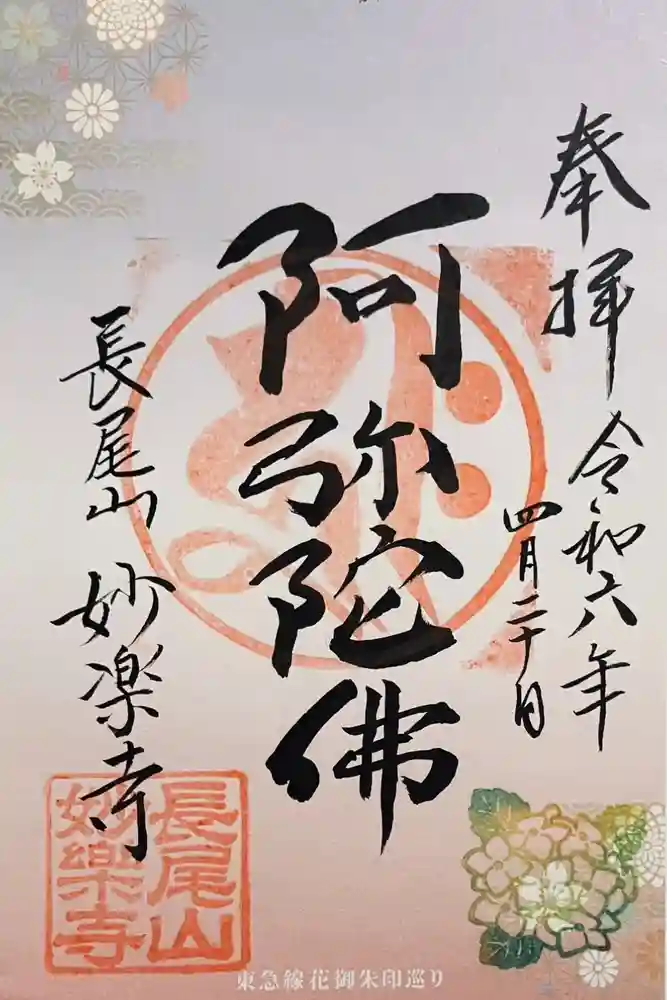 奉拝
令和六年
四月二十日
阿弥陀佛
長尾山 妙楽寺
長尾山
妙樂寺
東急線花御朱印巡り